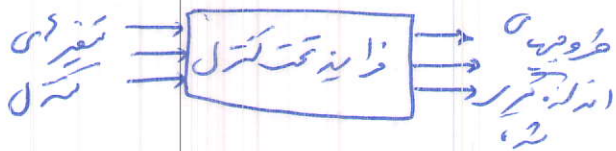 متغیرهای
کنترل
فرایند تحت کنترل
خروجیهای
اندازه گیری
شده